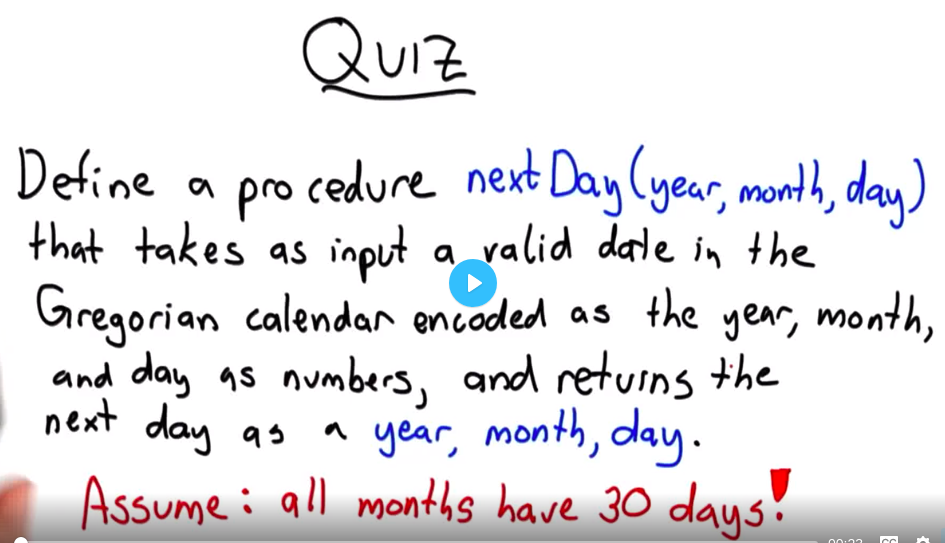 Quiz
Define a procedure nextDay(year, month, day)
that takes as input a valid date in the
Gregorian calendar encoded as the year, month,
and day as numbers, and returns the
next day as a year, month, day.
Assume: all months have 30 days!